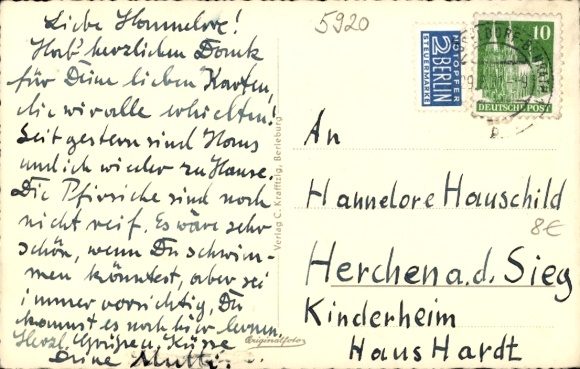 Liebe Hannelore!
Hab' herzlichen Dank
für Deine lieben Karten,
die wir alle erhielten!
Seit gestern sind Hans
und ich wieder zu Hause.
Die Pfirsiche sind noch
nicht reif. Es wäre sehr
schön, wenn Du schwim-
men könntest, aber sei
immer vorsichtig, Du
kannst es noch hier lernen.
Herzl. Grüße u. Küsse
Deine Mutti.
5920
NOTOPFER
2 BERLIN
STEUERMARKE
10
DEUTSCHE POST
Verlag C. Krafftzig, Berleburg
Originalfoto
An
Hannelore Hauschild
8€
Herchen a. d. Sieg
Kinderheim
Haus Hardt